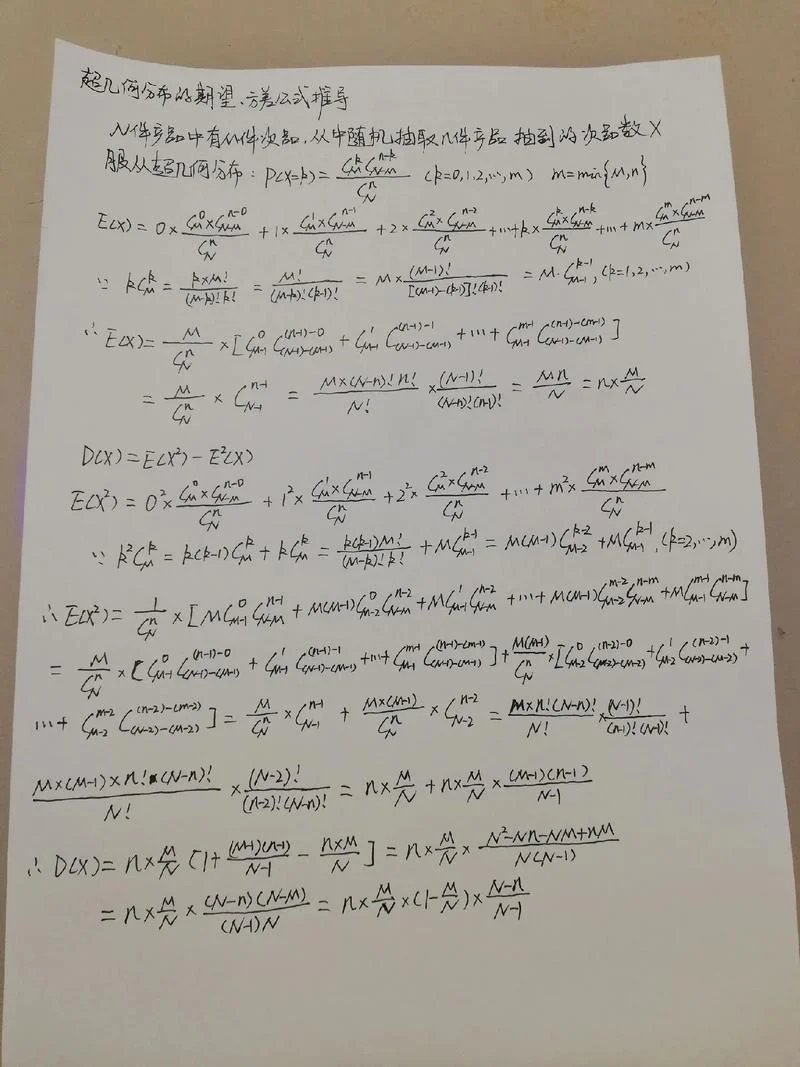 超几何分布的期望、方差公式推导
N件产品中有M件次品,从中随机抽取n件产品 抽到的次品数X
服从超几何分布: P(X=k)=\frac{C_M^k C_{N-M}^{n-k}}{C_N^n} (k=0,1,2,…,m) m=min{M,n}
E(X)=0×\frac{C_M^0×C_{N-M}^{n-0}}{C_N^n}+1×\frac{C_M^1×C_{N-M}^{n-1}}{C_N^n}+2×\frac{C_M^2×C_{N-M}^{n-2}}{C_N^n}+…+k×\frac{C_M^k×C_{N-M}^{n-k}}{C_N^n}+…+m×\frac{C_M^m×C_{N-M}^{n-m}}{C_N^n}
∵ kC_M^k=\frac{k×M!}{(M-k)!k!}=\frac{M!}{(M-k)!(k-1)!}=M×\frac{(M-1)!}{[(M-1)-(k-1)]!(k-1)!}=M·C_{M-1}^{k-1},(k=1,2,…,m)
∴ E(X)=\frac{M}{C_N^n}×[C_{M-1}^0 C_{(N-1)-(M-1)}^{(n-1)-0}+C_{M-1}^1 C_{(N-1)-(M-1)}^{(n-1)-1}+…+C_{M-1}^{m-1} C_{(N-1)-(M-1)}^{(n-1)-(m-1)}]
=\frac{M}{C_N^n}×C_{N-1}^{n-1}=\frac{M×(N-n)!n!}{N!}×\frac{(N-1)!}{(N-n)!(n-1)!}=\frac{Mn}{N}=n×\frac{M}{N}
D(X)=E(X²)-E²(X)
E(X²)=0²×\frac{C_M^0×C_{N-M}^{n-0}}{C_N^n}+1²×\frac{C_M^1×C_{N-M}^{n-1}}{C_N^n}+2²×\frac{C_M^2×C_{N-M}^{n-2}}{C_N^n}+…+m²×\frac{C_M^m×C_{N-M}^{n-m}}{C_N^n}
∵ k²C_M^k=k(k-1)C_M^k+kC_M^k=\frac{k(k-1)M!}{(M-k)!k!}+MC_{M-1}^{k-1}=M(M-1)C_{M-2}^{k-2}+MC_{M-1}^{k-1},(k=2,…,m)
∴ E(X²)=\frac{1}{C_N^n}×[MC_{M-1}^0 C_{N-M}^{n-1}+M(M-1)C_{M-2}^0 C_{N-M}^{n-2}+MC_{M-1}^1 C_{N-M}^{n-2}+…+M(M-1)C_{M-2}^{m-2} C_{N-M}^{n-m}+MC_{M-1}^{m-1} C_{N-M}^{n-m}]
=\frac{M}{C_N^n}×[C_{M-1}^0 C_{(N-1)-(M-1)}^{(n-1)-0}+C_{M-1}^1 C_{(N-1)-(M-1)}^{(n-1)-1}+…+C_{M-1}^{m-1} C_{(N-1)-(M-1)}^{(n-1)-(m-1)}]+\frac{M(M-1)}{C_N^n}×[C_{M-2}^0 C_{(N-2)-(M-2)}^{(n-2)-0}+C_{M-2}^1 C_{(N-2)-(M-2)}^{(n-2)-1}+
…+C_{M-2}^{m-2} C_{(N-2)-(M-2)}^{(n-2)-(m-2)}]=\frac{M}{C_N^n}×C_{N-1}^{n-1}+\frac{M×(M-1)}{C_N^n}×C_{N-2}^{n-2}=\frac{M×n!(N-n)!}{N!}×\frac{(N-1)!}{(n-1)!(N-n)!}+
\frac{M×(M-1)×n!×(N-n)!}{N!}×\frac{(N-2)!}{(n-2)!(N-n)!}=n×\frac{M}{N}+n×\frac{M}{N}×\frac{(M-1)(n-1)}{N-1}
∴ D(X)=n×\frac{M}{N}[1+\frac{(M-1)(n-1)}{N-1}-\frac{n×M}{N}]=n×\frac{M}{N}×\frac{N²-Nn-NM+nM}{N(N-1)}
=n×\frac{M}{N}×\frac{(N-n)(N-M)}{(N-1)N}=n×\frac{M}{N}×(1-\frac{M}{N})×\frac{N-n}{N-1}